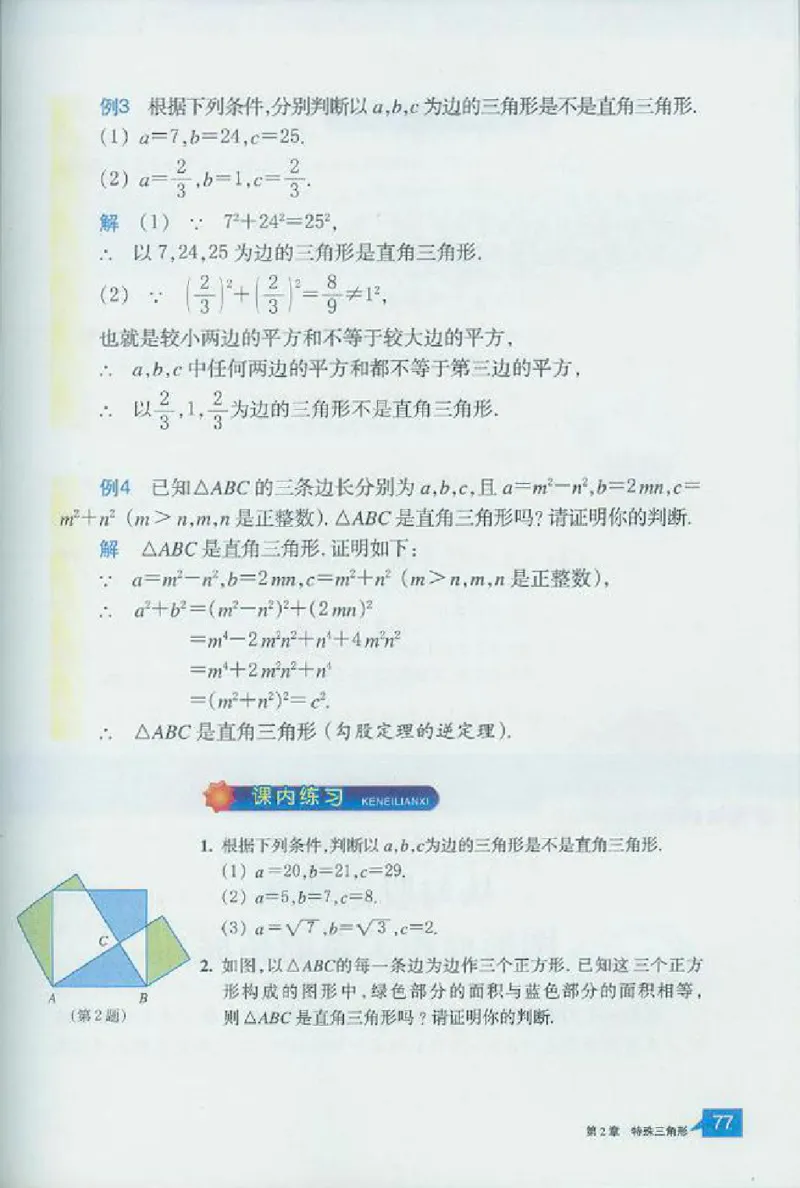 例3 根据下列条件,分别判断以 a,b,c 为边的三角形是不是直角三角形.
(1) a=7,b=24,c=25.
(2) a=2/3,b=1,c=2/3.
解 (1) ∵ 7²+24²=25²,
∴ 以 7,24,25 为边的三角形是直角三角形.
(2) ∵ (2/3)²+(2/3)²=8/9≠1²,
也就是较小两边的平方和不等于较大边的平方,
∴ a,b,c 中任何两边的平方和都不等于第三边的平方,
∴ 以2/3,1,2/3为边的三角形不是直角三角形.
例4 已知△ABC 的三条边长分别为 a,b,c,且 a=m²-n²,b=2mn,c=
m²+n² (m>n,m,n 是正整数). △ABC 是直角三角形吗?请证明你的判断.
解 △ABC 是直角三角形. 证明如下:
∵ a=m²-n²,b=2mn,c=m²+n² (m>n,m,n 是正整数),
∴ a²+b²=(m²-n²)²+(2mn)²
=m⁴-2m²n²+n⁴+4m²n²
=m⁴+2m²n²+n⁴
=(m²+n²)²=c².
∴ △ABC 是直角三角形 (勾股定理的逆定理).
课内练习 KENEILIANXI
1. 根据下列条件,判断以 a,b,c为边的三角形是不是直角三角形.
(1) a=20,b=21,c=29.
(2) a=5,b=7,c=8.
(3) a=√7,b=√3,c=2.
2. 如图,以△ABC的每一条边为边作三个正方形. 已知这三个正方
形构成的图形中,绿色部分的面积与蓝色部分的面积相等,
则 △ABC 是直角三角形吗?请证明你的判断.
C
A B
(第2题)
第2章 特殊三角形 77